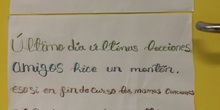 Último día ultimas lecciones
amigos hice un montón.
eso si en fin de curso las mismas canciones